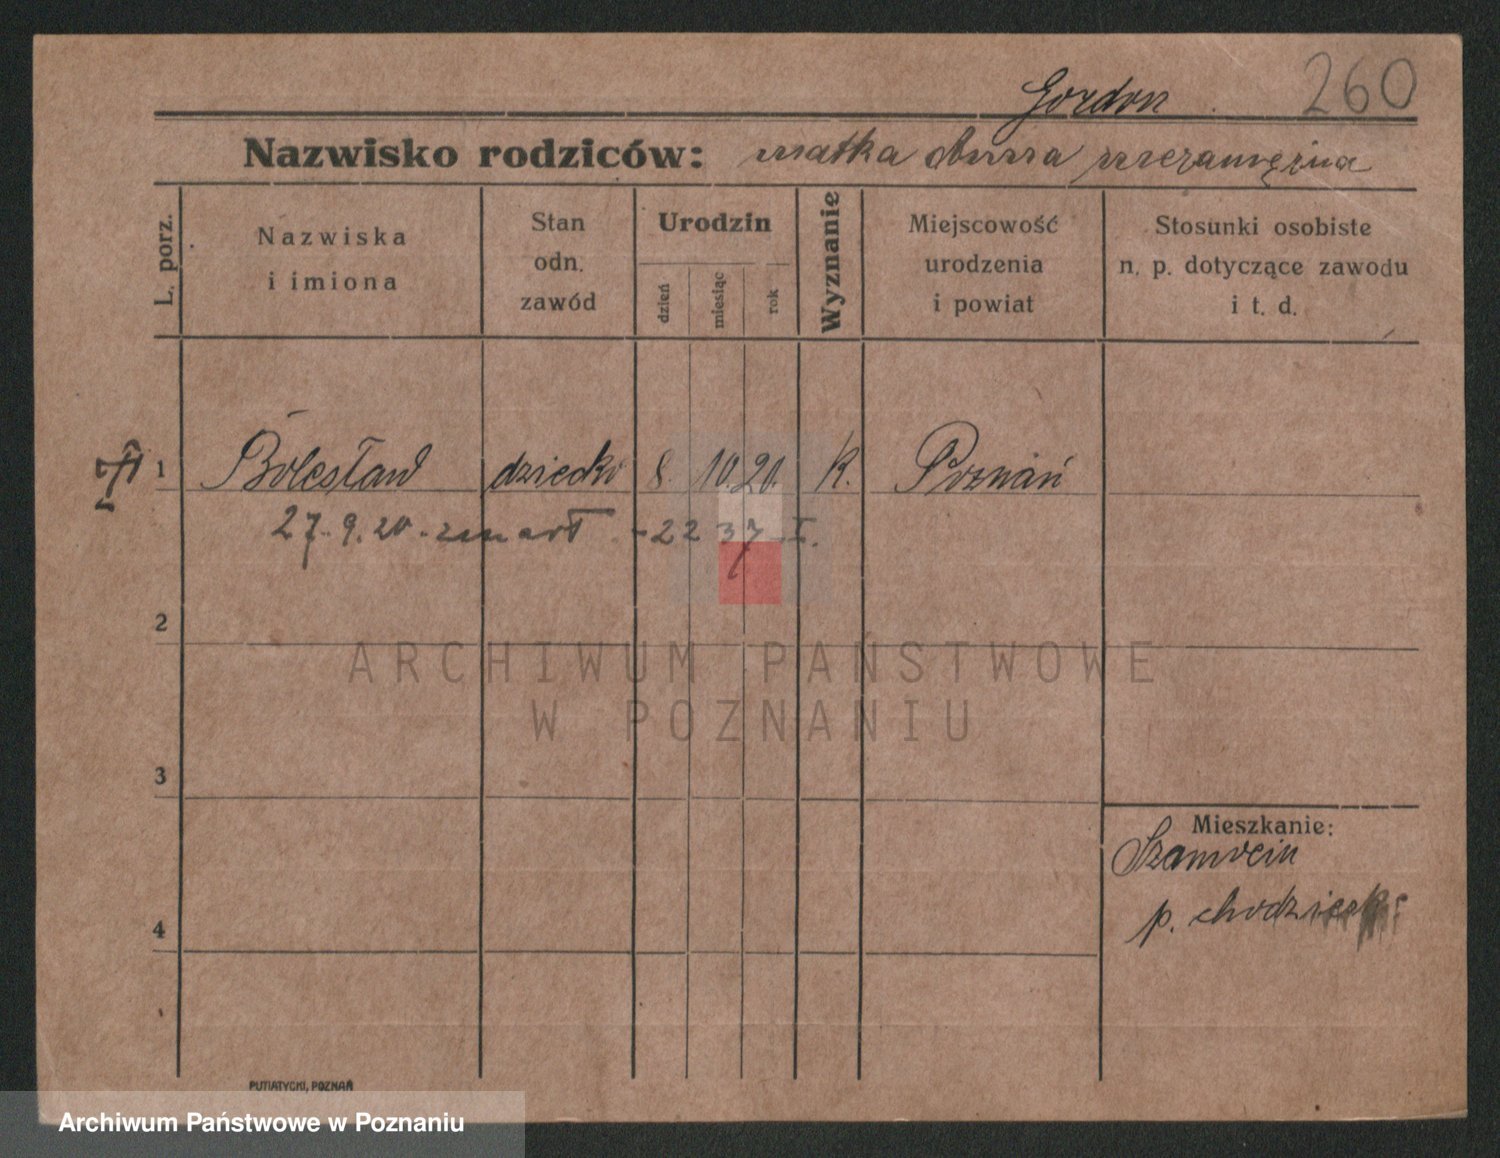 260
Gordon
Nazwisko rodziców: matka Anna niezamężna
L. porz.
Nazwiska
i imiona
Stan
odn.
zawód
Urodzin
dzień
miesiąc
rok
Wyznanie
Miejscowość
urodzenia
i powiat
Stosunki osobiste
n. p. dotyczące zawodu
i t. d.
1 Bolesław dziecko 8. 10. 20. K. Poznań
27. 9. 20. zmarł - 2237 - I.
2
ARCHIWUM PAŃSTWOWE
W POZNANIU
3
Mieszkanie:
Szamocin
p. chodzieski
4
PUTIATYCKI, POZNAŃ
Archiwum Państwowe w Poznaniu